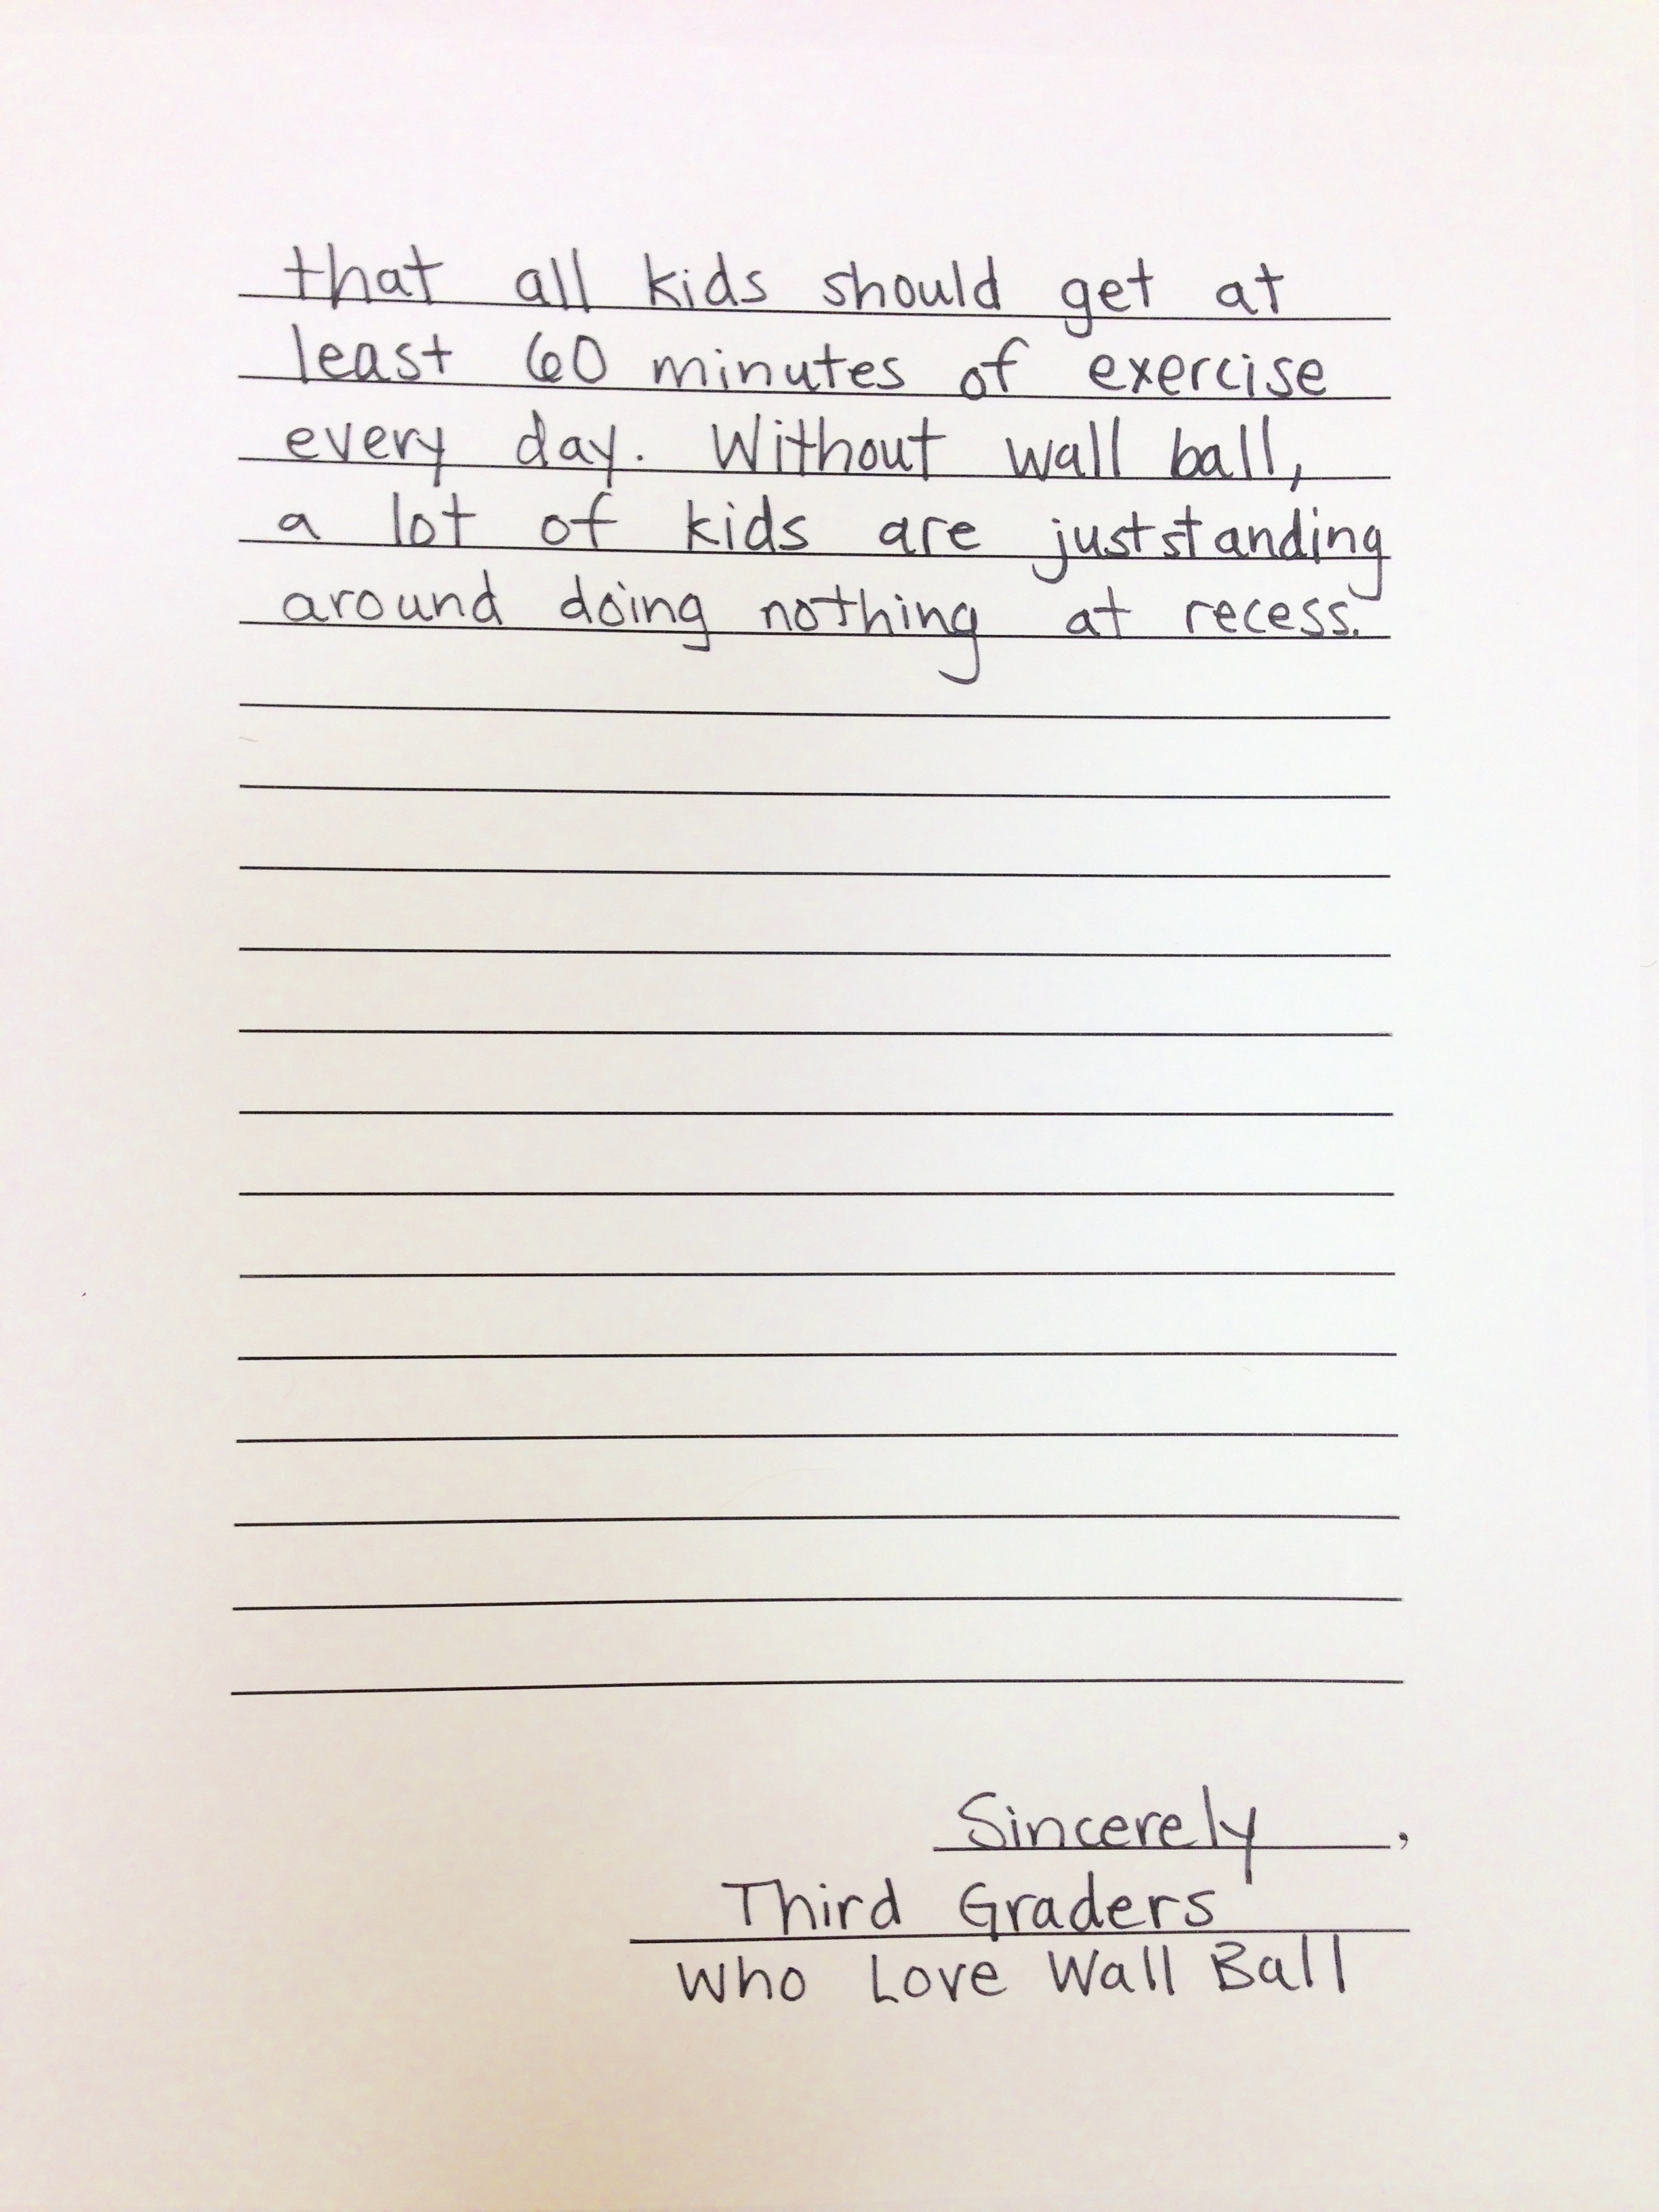 that all kids should get at
least 60 minutes of exercise
every day. Without wall ball,
a lot of kids are just standing
around doing nothing at recess.
Sincerely,
Third Graders
Who Love Wall Ball